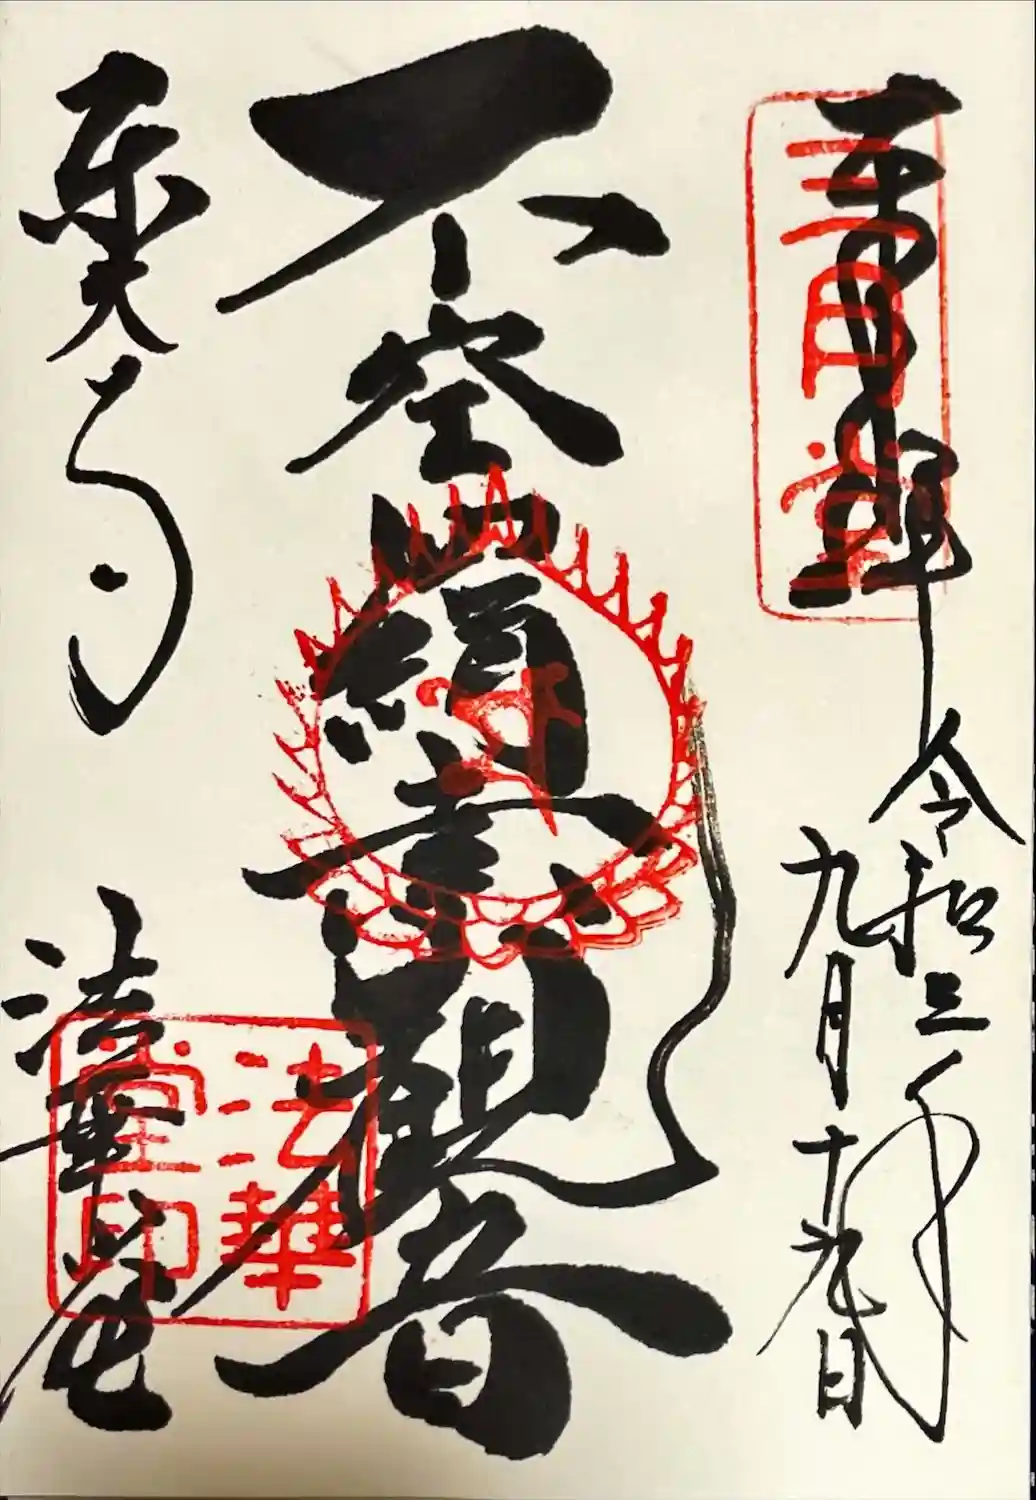 奉拝
三月堂
令和三年
九月十九日
不空羂索観音
東大寺
法華堂
法華堂印